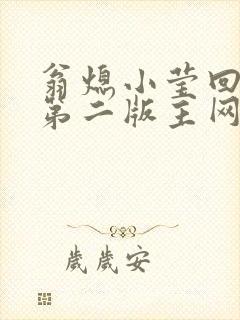 翁熄小莹回
第二版主网
歲歲安